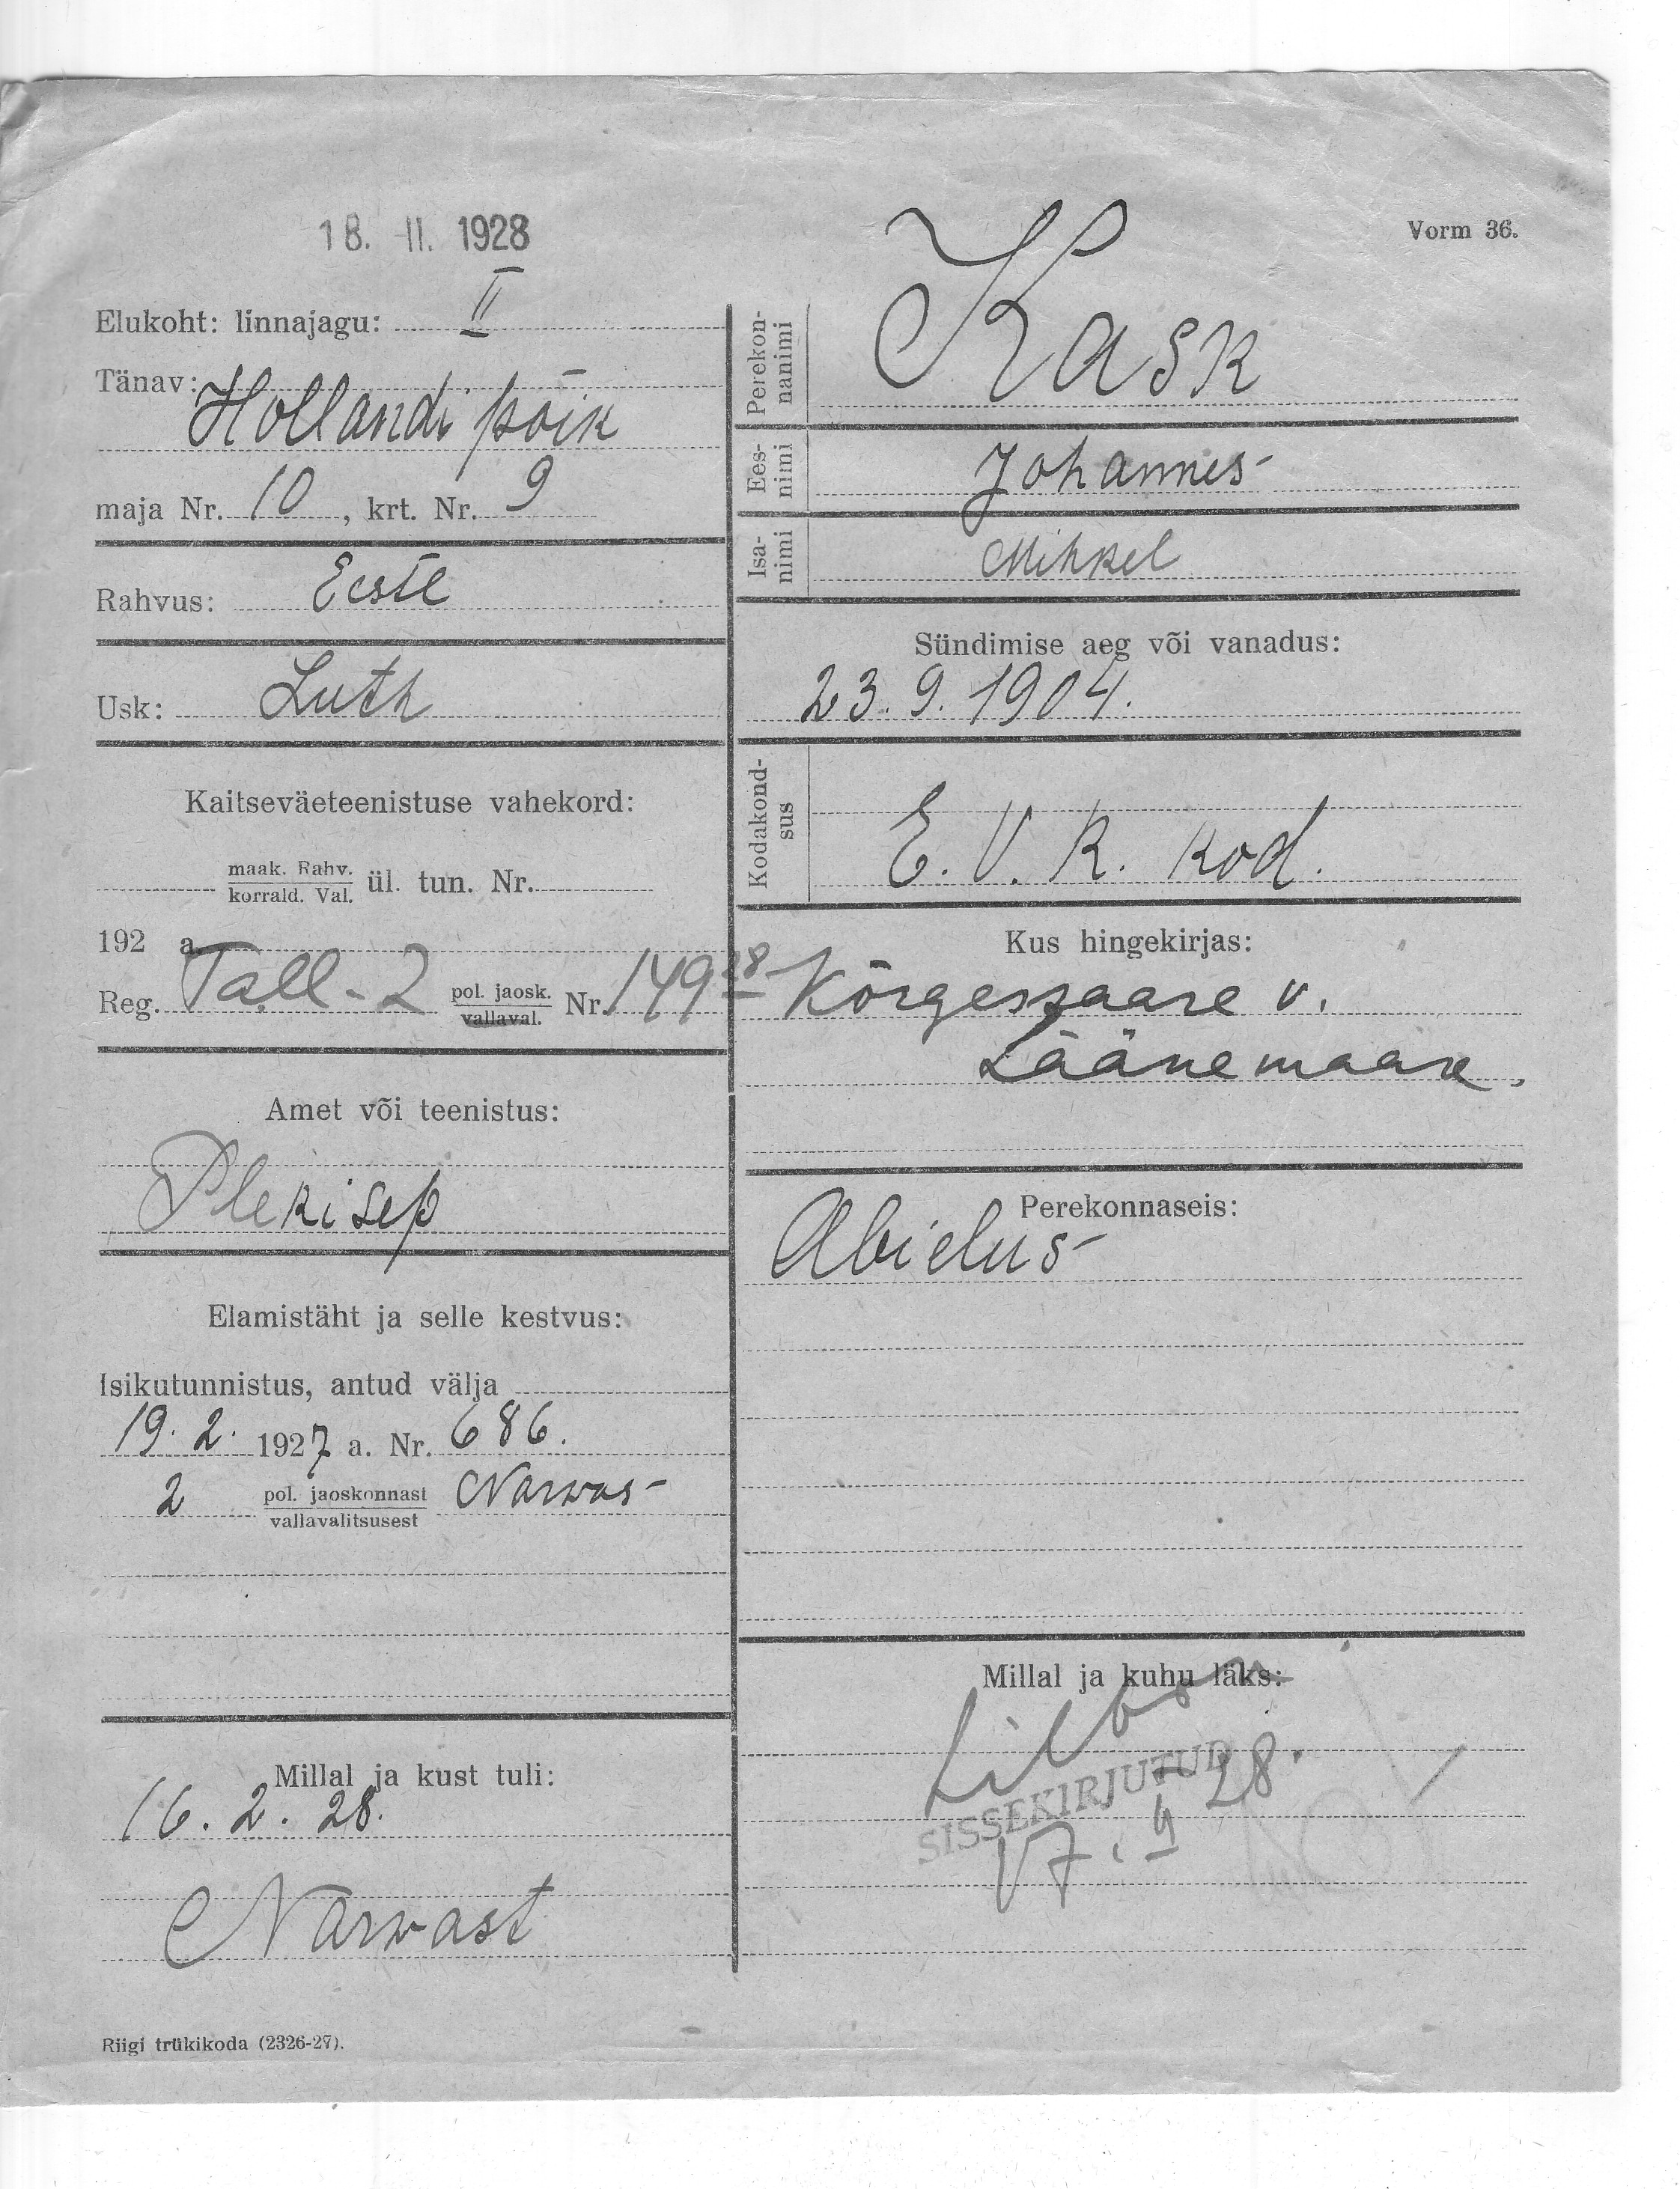 18. II. 1928
Vorm 36.
Elukoht: linnajagu: II
Tänav:
Hollandi põik
maja Nr. 10, krt. Nr. 9
Rahvus: Eesti
Usk: Luth
Kaitseväeteenistuse vahekord:
maak. Rahv.
korrald. Val.
ül. tun. Nr.
192 a.
Reg. Tall-2 pol. jaosk. Nr. 149
vallaval.
Amet või teenistus:
Plekisep
Elamistäht ja selle kestvus:
Isikutunnistus, antud välja
19. 2. 1927 a. Nr. 686.
2 pol. jaoskonnast Narwas
vallavalitsusest
Millal ja kust tuli:
16. 2. 28.
Narwast
Riigi trükikoda (2326-27).
Perekon-
nanimi
Kask
Ees-
nimi
Johannes
Isa-
nimi
Mihkel
Sündimise aeg või vanadus:
23. 9. 1904.
Kodakond-
sus
E. V. R. kod.
Kus hingekirjas:
Kõrgessaare v.
Läänemaare.
Perekonnaseis:
Abielus
Millal ja kuhu läks:
SISSEKIRJUTUD
28.
17. II